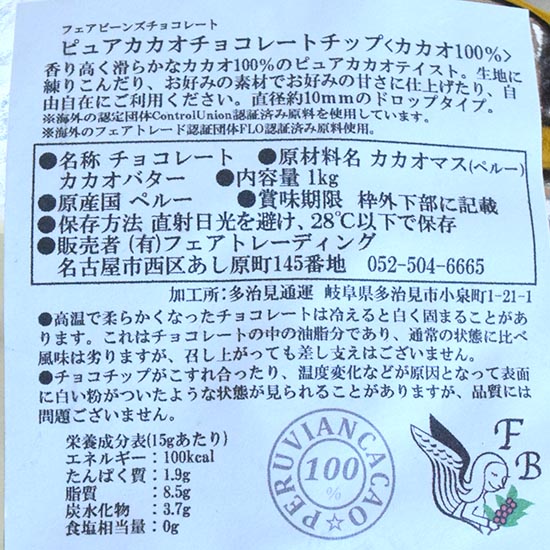 フェアビーンズチョコレート
ピュアカカオチョコレートチップ<カカオ100%>
香り高く滑らかなカカオ100%のピュアカカオテイスト。生地に
練りこんだり、お好みの素材でお好みの甘さに仕上げたり、自
由自在にご利用ください。直径約10mmのドロップタイプ。
※海外の認定団体ControlUnion認証済み原料を使用しています。
※海外のフェアトレード認証団体FLO認証済み原料使用。
●名称 チョコレート ●原材料名 カカオマス(ペルー)
カカオバター ●内容量 1kg
●原産国 ペルー ●賞味期限 枠外下部に記載
●保存方法 直射日光を避け、28℃以下で保存
●販売者 (有)フェアトレーディング
名古屋市西区あし原町145番地 052-504-6665
加工所:多治見通運 岐阜県多治見市小泉町1-21-1
●高温で柔らかくなったチョコレートは冷えると白く固まることがあ
ります。これはチョコレートの中の油脂分であり、通常の状態に比べ
風味は劣りますが、召し上がっても差し支えはございません。
●チョコチップがこすれ合ったり、温度変化などが原因となって表面
に白い粉がついたような状態が見られることがありますが、品質には
問題ございません。
栄養成分表(15gあたり)
エネルギー:100kcal
たんぱく質:1.9g
脂質:8.5g
炭水化物:3.7g
食塩相当量:0g
PERUVIANCACAO☆
100
%
F
B